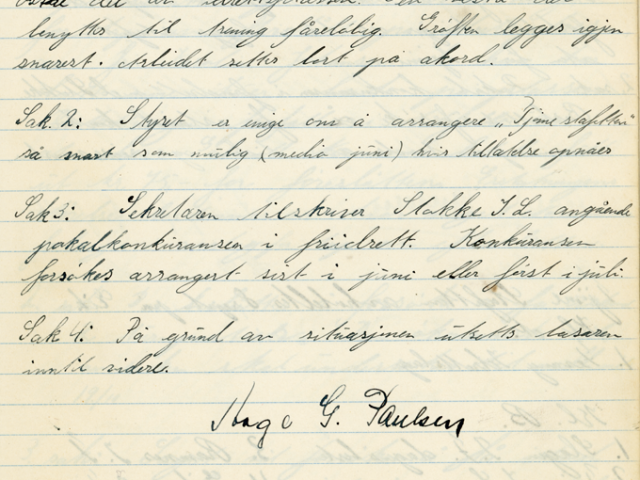 benyttes til trening foreløbig. Grøften legges igjen
snarest. Arbeidet settes bort på akord.
Sak 2: Styret er enige om å arrangere „Tjømestafetten"
så snart som mulig (medio juni) hvis tillatelse opnåes
Sak 3: Sekretæren tilskriver Stokke I.L. angående
pokalkonkuransen i friidrett. Konkuransen
forsøkes arrangert sist i juni eller først i juli.
Sak 4: På grund av situasjonen utsetts basaren
inntil videre.
Hage G. Paulsen